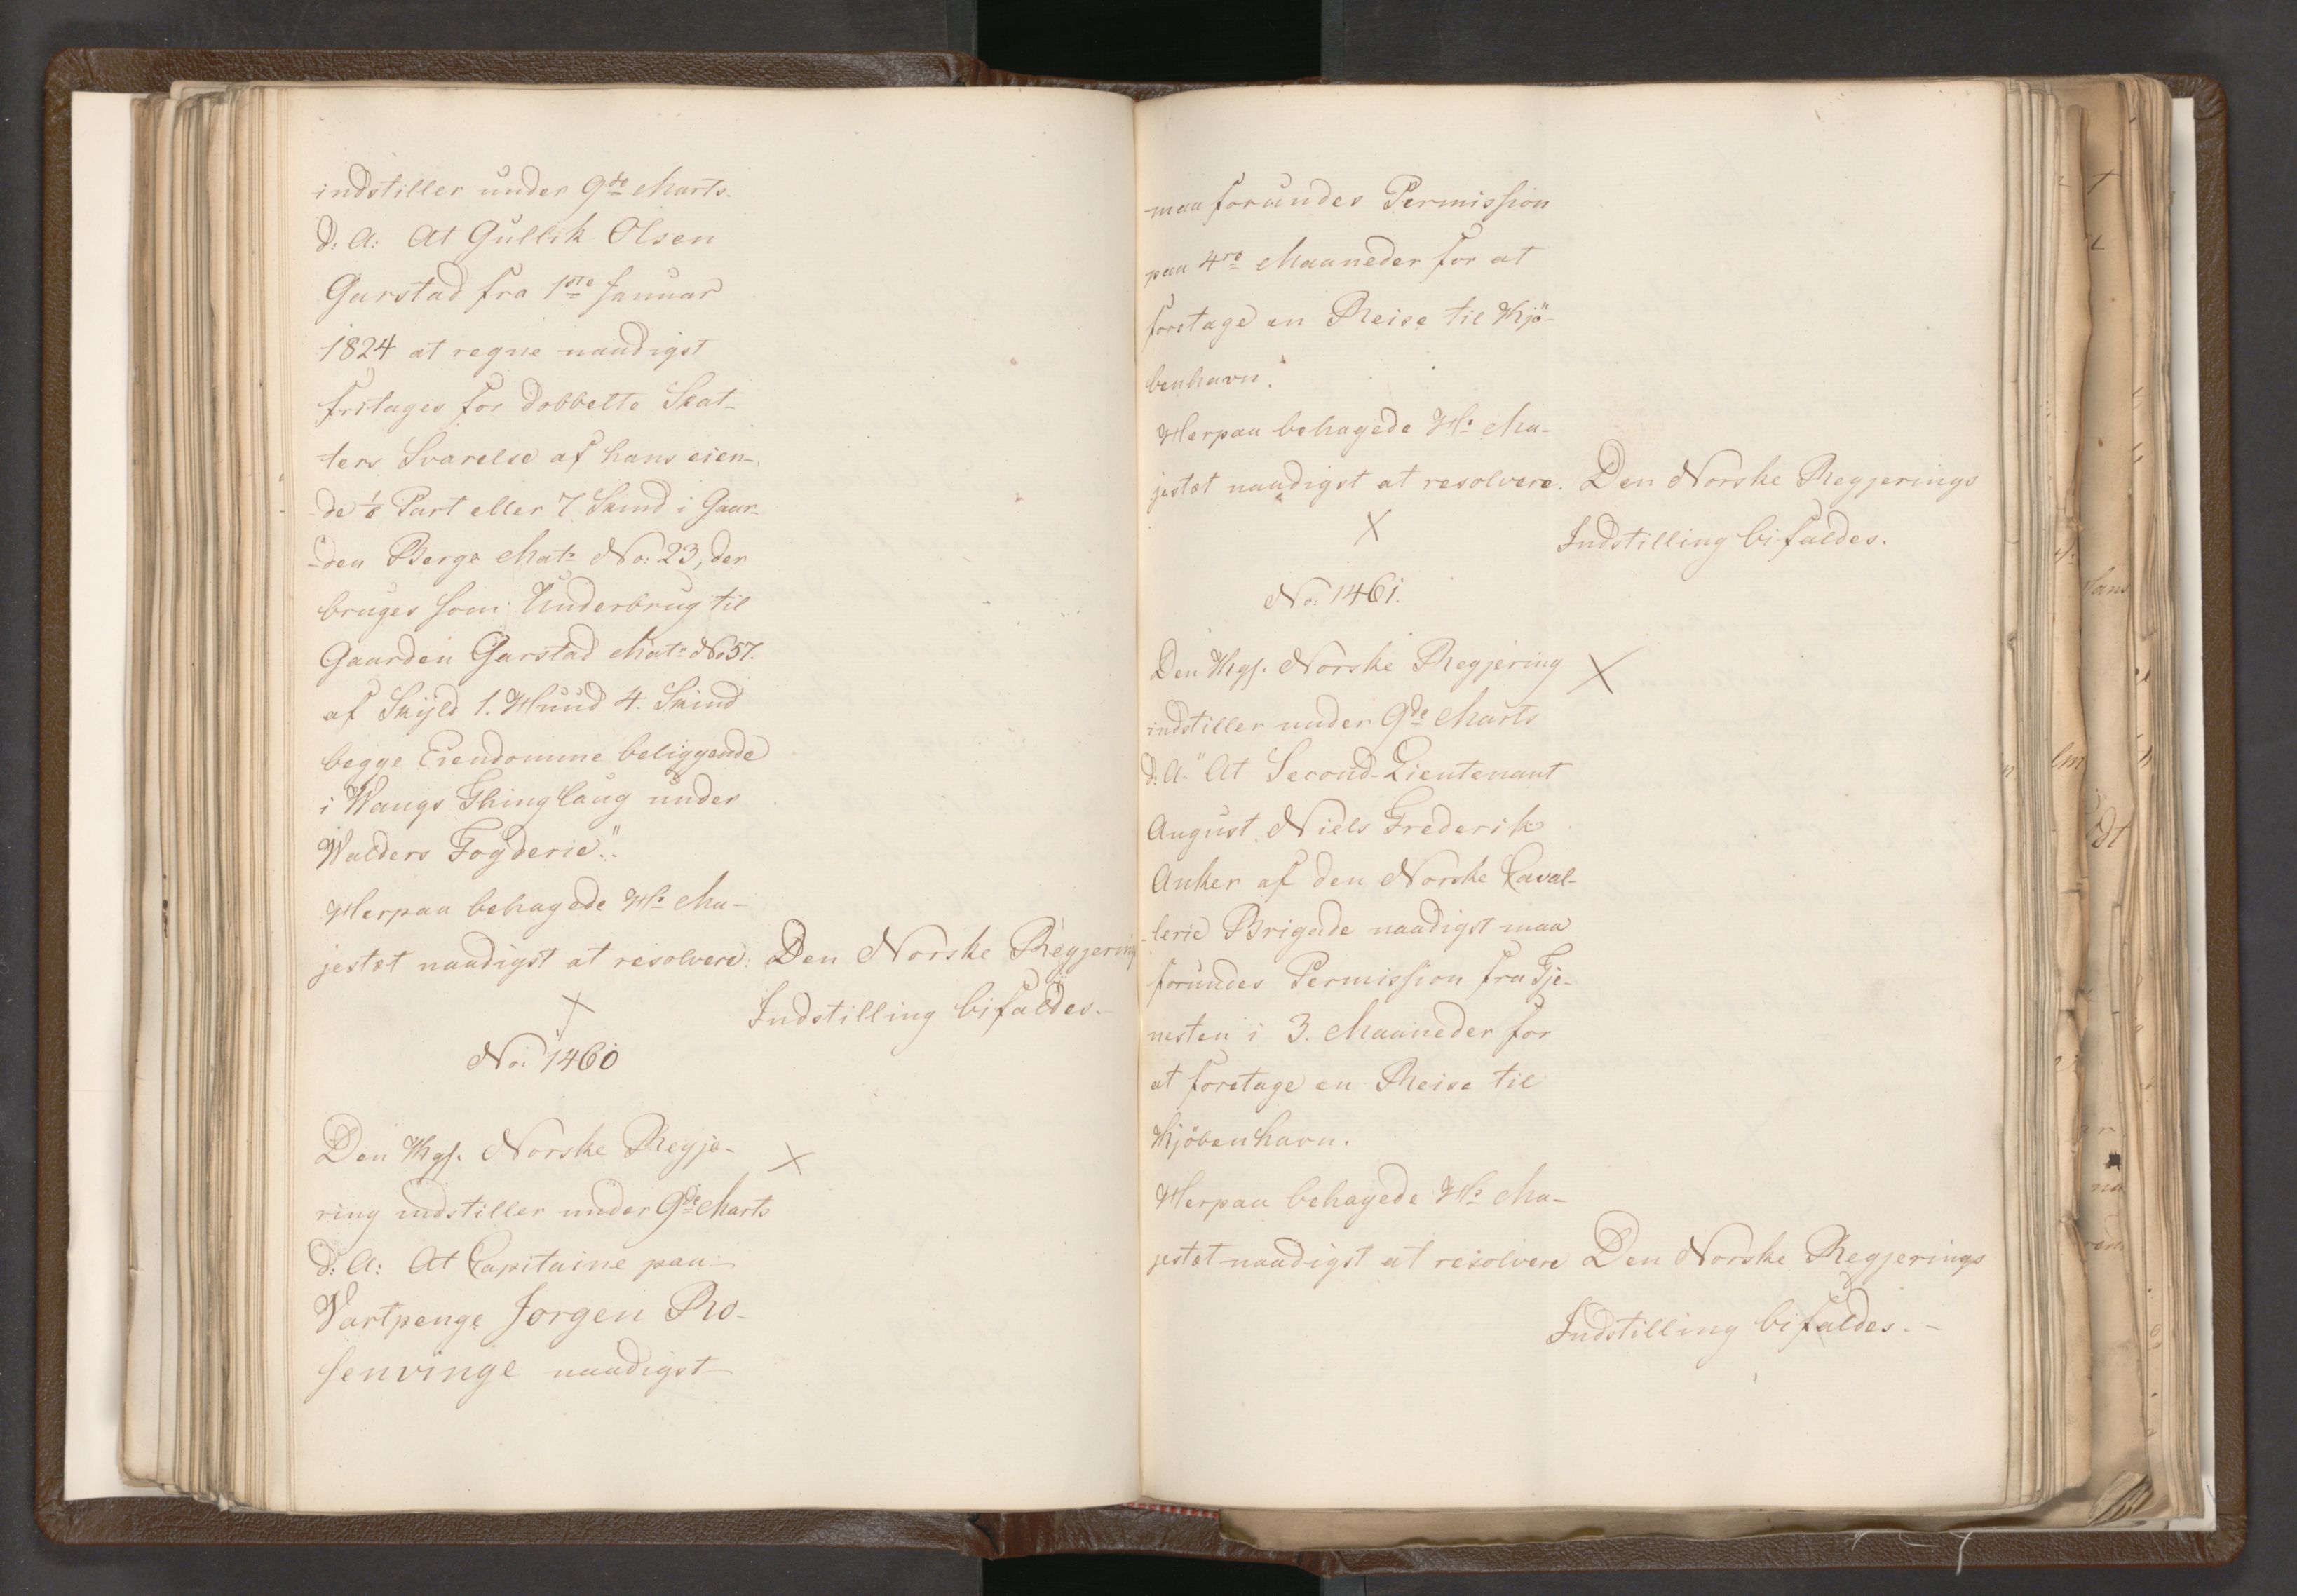 indstiller under 9de Marts.
d: A: At Gullik Olsen
Garstad fra 1ste Januar
1824 at regne naadigst
fritages for dobbelte Skat-
ters Svarelse af hans eien-
de 1/8 Part eller 7 Skind i Gaar-
den Berge Mat: No: 23, der
bruges som Underbrug til
Gaarden Garstad Mat: No 57.
af Skyld 1. Huud 4. Skind
begge Eiendomme beliggende
i Wangs Thinglaug under
Walders Fogderie."
Herpaa behagede Hs Ma-
jestæt naadigst at resolvere: Den Norske Regjerings
Indstilling bifaldes.-
No: 1460
Den Kgl. Norske Regje-
ring indstiller under 9de Marts
d: A: At Capitaine paa
Vartpenge Jorgen Ro-
senvinge naadigst
maa forundes Permission
paa 4re Maaneder for at
foretage en Reise til Kjö-
benhavn.
Herpaa behagede Hs Ma-
jestæt naadigst at resolvere. Den Norske Regjerings
Indstilling bifaldes.
No: 1461.
Den Kgl. Norske Regjering
indstiller under 9de Marts
d: A: "At Second-Lieutenant
August Niels Frederik
Anker af den Norske Caval-
lerie Brigade naadigst maa
forundes Permission fra Tje-
nesten i 3. Maaneder for
at foretage en Reise til
Kjöbenhavn.
Herpaa behagede Hs Ma-
jestæt naadigst at resolvere Den Norske Regjerings
Indstilling bifaldes.-